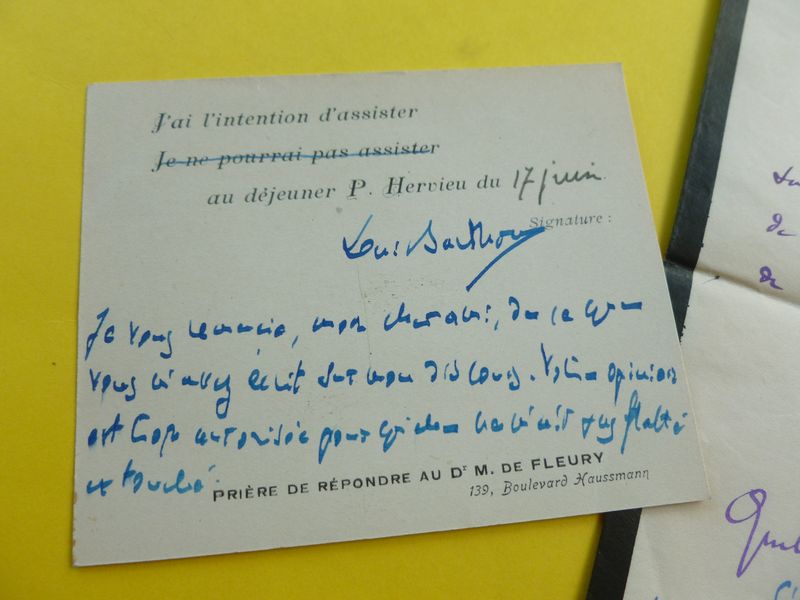 J'ai l'intention d'assister
Je ne pourrai pas assister
au déjeuner P. Hervieu du 17 juin
Signature :
Louis Barthou
Je vous remercie, mon cher ami, de ce que
vous m'avez écrit sur mon discours. Votre opinion
est trop autorisée pour qu'elle ne m'ait pas flatté
et touché.
PRIÈRE DE RÉPONDRE AU Dr M. DE FLEURY
139, Boulevard Haussmann
de
de